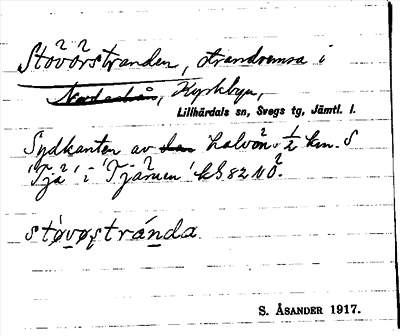 Stövörstranden, strandremsa i
Kyrkbyn,
Lillhärdals sn, Svegs tg, Jämtl. l.
Sydkanten av halvön ½ km. S
'Tjä' i 'Tjärnen' kS 82 NO.
støvøstránda
S. ÅSANDER 1917.